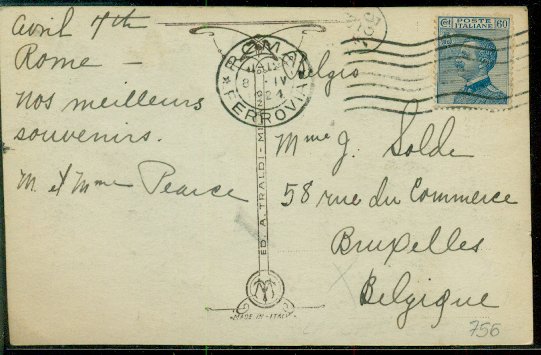 avril 7th
Rome —
Nos meilleurs
souvenirs.
M et Mme Pearce
ROMA
FERROVIA
24
ED. A. TRALDI - MI
MADE IN ITALY
Cent POSTE 60
ITALIANE
Belgio
Mme J. Solde
58 rue du Commerce
Bruxelles
Belgique
756